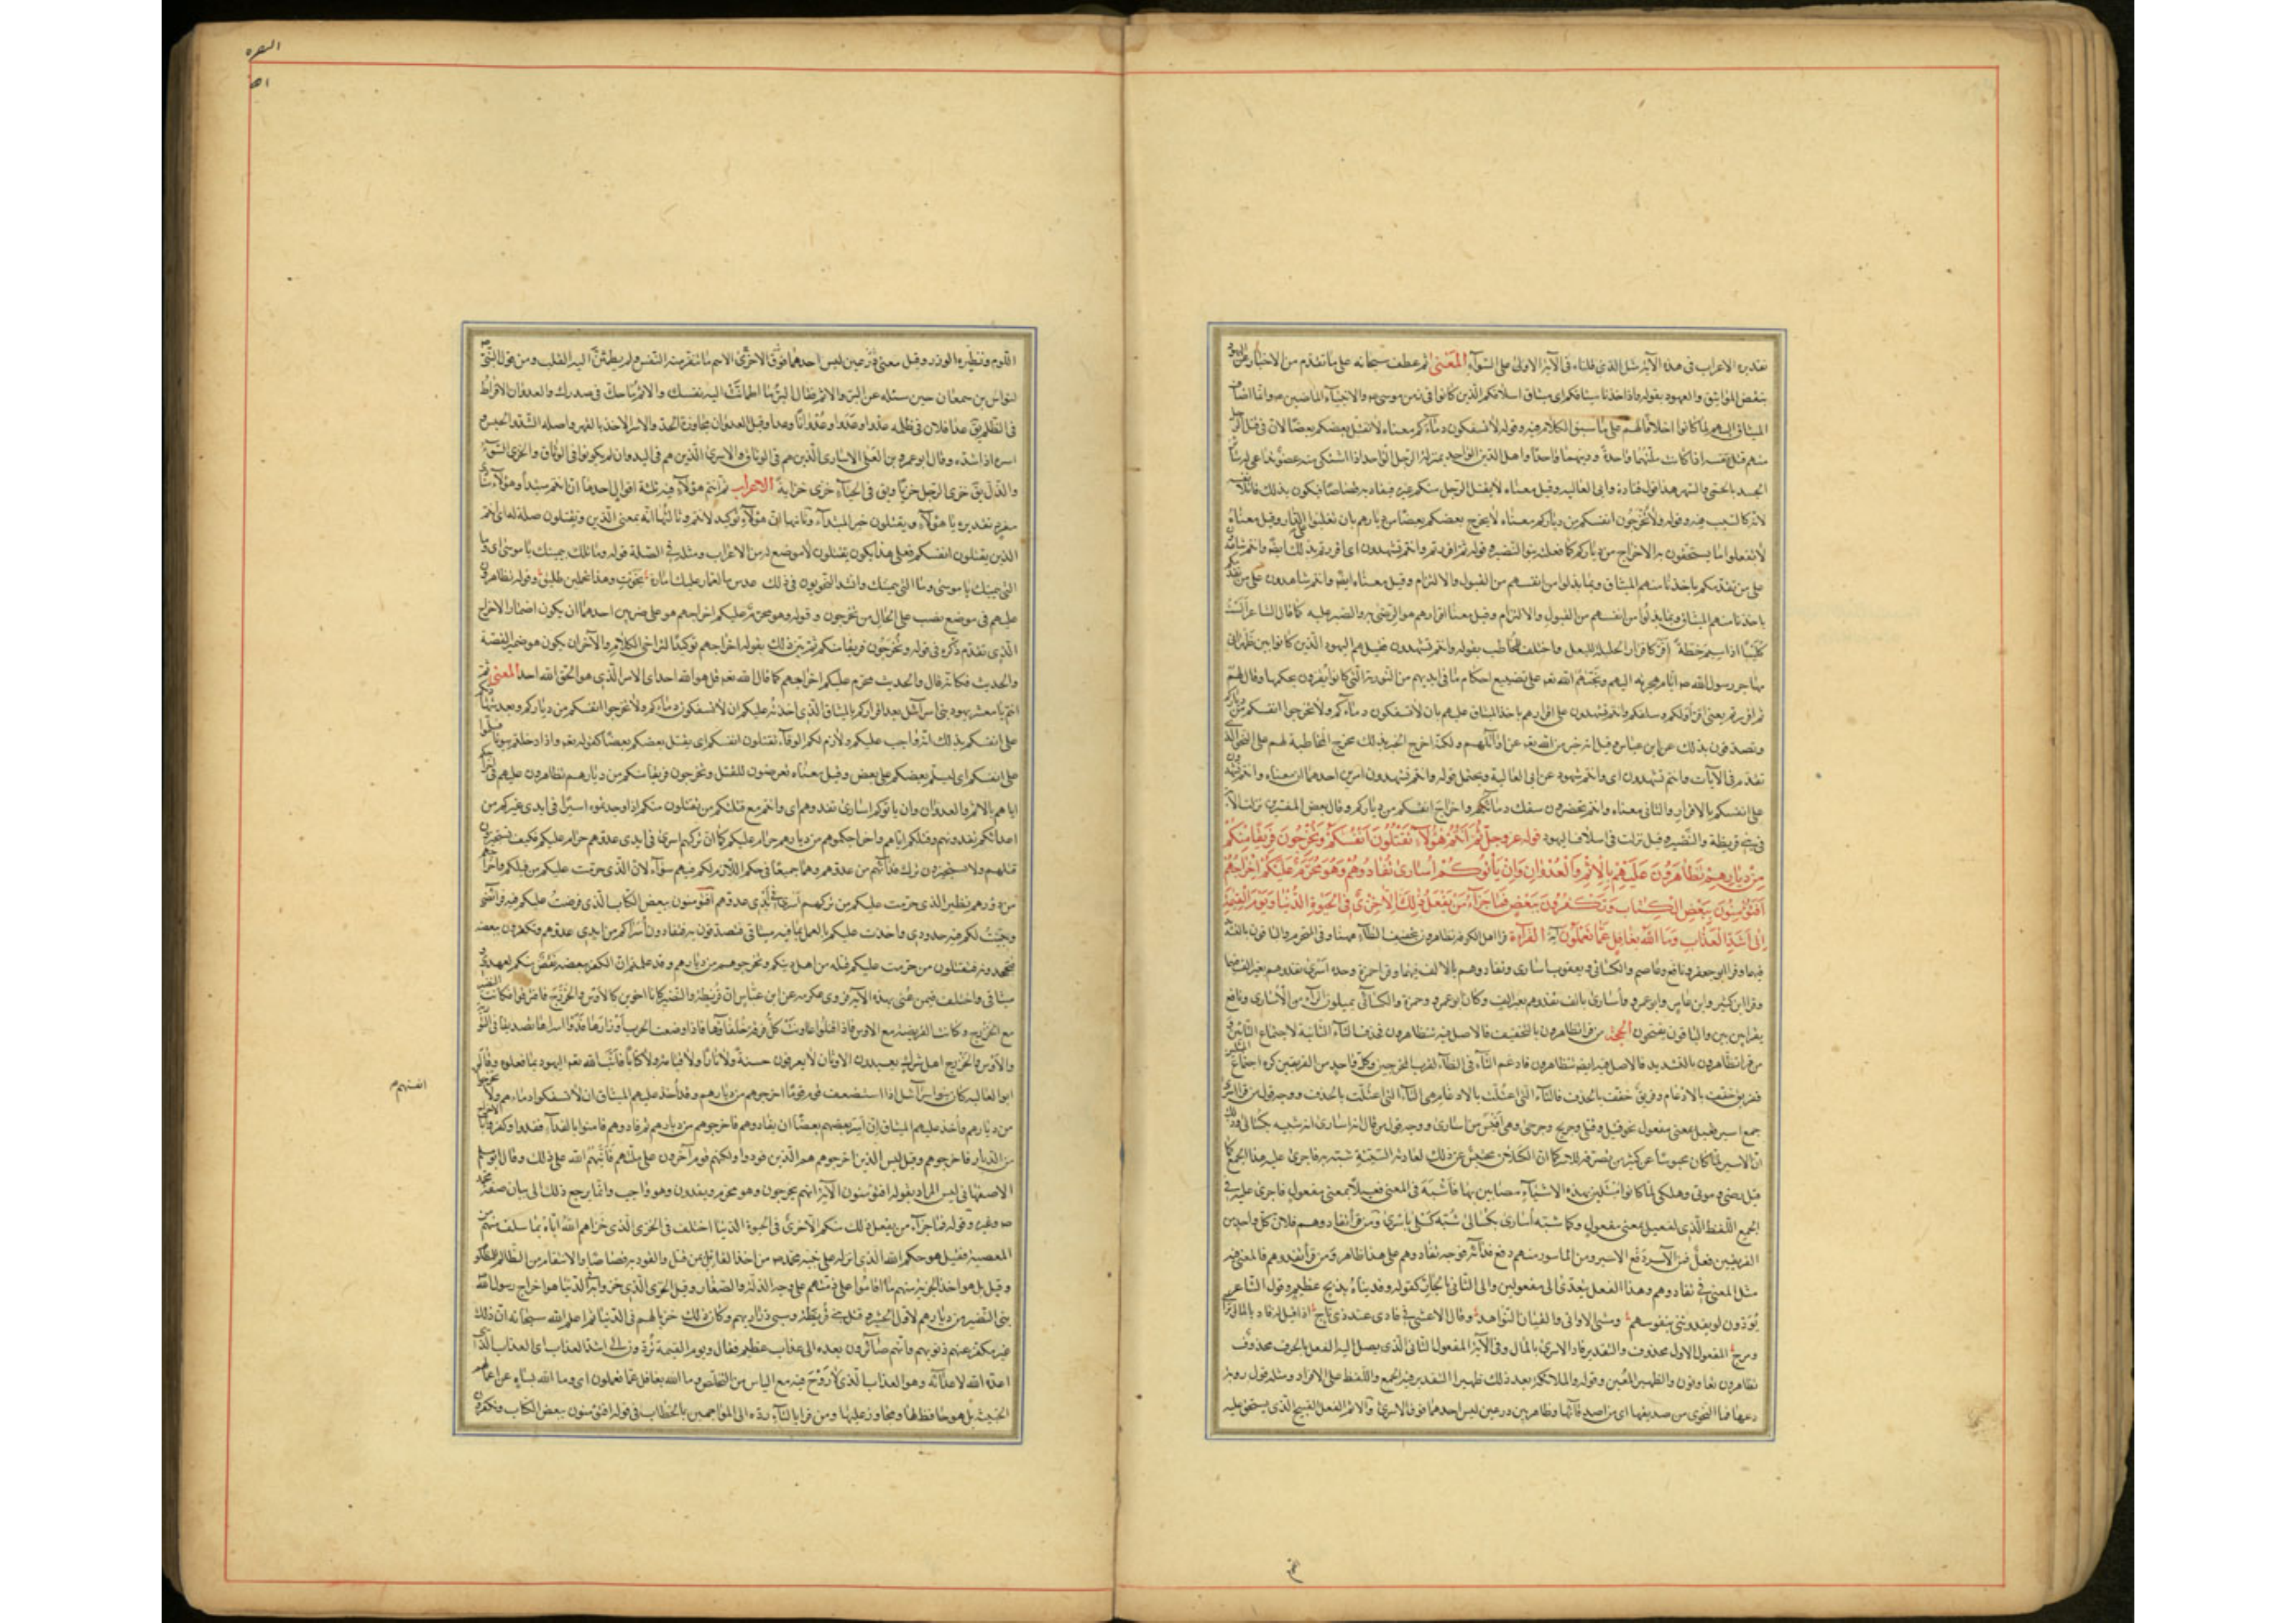 تقديره الاعراب فى هذه الآية مثل الذى قلناه فى الآية الاولى على السوآء المعنى ثم عطف سبحانه على ما تقدم من الاخبار عن اليهود
بنقض المواثيق والعهود بقوله واذ اخذنا ميثاقكم اى ميثاق اسلافكم الذين كانوا فى زمن موسى والانبيآء الماضين وانما اضاف
الميثاق اليهم لما كانوا اخلافا لهم على ما سبق الكلام فيه وقوله لا تسفكون دمآءكم معناه لا يقتل بعضكم بعضا لان فى قتل الرجل
منهم قتل نفسه اذا كانت ملتهما واحدة ودينهما واحدا واهل الدين الواحد بمنزلة الرجل الواحد
الجسد بالحمى والسهر هذا قول قتادة وابى العالية وقيل معناه لا يقتل الرجل منكم غيره فيقاد به قصاصا فيكون بذلك قاتلا لنفسه
لانه كالسبب فيه وقوله ولا تخرجون انفسكم من دياركم معناه لا يخرج بعضكم بعضا من ديارهم بان تغلبوا على الدار وقيل معناه
لا تفعلوا ما يستحقون به الاخراج من دياركم كما فعله بنو النضير وقوله ثم اقررتم وانتم تشهدون اى اقررتم بذلك
على من تقدمكم باخذنا منهم الميثاق وبما بذلوا من انفسهم من القبول والالتزام وقيل معناه
باخذنا منهم الميثاق وبما بذلوا من انفسهم من القبول والالتزام وقيل معنى اقرارهم هو الرضى به والصبر عليه كما قال الشاعر الست
كليبيا اذا سيم خطة اقر كاقرار الحليلة للبعل واختلف المخاطب بقوله وانتم تشهدون فقيل هم اليهود الذين كانوا بين ظهرانى
مهاجر رسول الله ايام هجرته اليهم وبخهم الله تعالى على تضييع احكام ما فى ايديهم من التورية التى كانوا يقرون بحكمها وقال لهم
ثم اقررتم يعنى اقر اولكم وسلفكم وانتم تشهدون على اقرارهم باخذ الميثاق عليهم بان لا تسفكون دمآءكم ولا تخرجوا انفسكم من دياركم
وتصدقون بذلك عن ابن عباس وقيل انه خبر من الله عز وجل عن اوآئلهم ولكنه اخرج الخبر بذلك مخرج المخاطبة لهم على النحو الذى
تقدم فى الآيات وانتم شهود عن ابى العالية ويحتمل قوله وانتم تشهدون امرين احدهما ان معناه وانتم تشهدون
على انفسكم بالاقرار والثانى معناه وانتم تحضرون سفك دمآئكم واخراج انفسكم من دياركم وقال بعض المفسرين نزلت الآية
فى بنى قريظة والنضير وقيل نزلت فى اسلاف اليهود قوله عز وجل ثم انتم هؤلآء تقتلون انفسكم وتخرجون فريقا منكم
من ديارهم تظاهرون عليهم بالاثم والعدوان وان ياتوكم اسارى تفادوهم وهو محرم عليكم اخراجهم
افتؤمنون ببعض الكتاب وتكفرون ببعض فما جزآء من يفعل ذلك منكم الا خزى فى الحيوة الدنيا ويوم القيمة يردون
الى اشد العذاب وما الله بغافل عما تعملون آية القرآءة قرا اهل الكوفة تظاهرون بتخفيف الظآء هيهنا وفى التحريم والباقون بالتشديد
فيهما وقرا ابو جعفر ونافع وعاصم والكسائى ويعقوب اسارى وتفادوهم بالالف فيهما وقرا حمزة وحده اسرى تفدوهم بغير الف فيهما
وقرا ابن كثير وابن عامر وابو عمرو اسارى بالف تفدوهم بغير الف وكان ابو عمرو وحمزة والكسائى يميلون الرآء من الاسارى ونافع
يقرا بين بين والباقون يفخمون الحجة من قرا تظاهرون بالتخفيف فالاصل فيه تتظاهرون فحذف التآء الثانية لاجتماع التائين
من قرا تظاهرون بالتشديد فالاصل فيه ايضا تتظاهرون فادغم التآء فى الظآء لقرب المخرجين وكل واحد من الفريقين كره اجتماع المثلين
ففريق خفف بالادغام وفريق خفف بالحذف فالتآء التى اعتلت بالادغام هى التآء التى اعتلت بالحذف ووجه قول من قرا اسرى
جمع اسير فعيل بمعنى مفعول نحو قتيل وقتلى وجريح وجرحى وهى اقيس من اسارى ووجه قول من قال اسارى انه شبهه بكسالى وذلك
ان الاسير لما كان محبوسا عن كثير من تصرفه للاسر كما ان الكسلان محتبس عن ذلك لعادته السيئة شبه به فاجرى عليه هذا الجمع كما
قيل مرضى وموتى وهلكى لما كانوا مبتلين بهذه الاشيآء مصابين بها فاشبه فى المعنى فعيلا بمعنى مفعول فاجرى عليه فى
الجمع اللفظ الذى لفعيل بمعنى مفعول وكما شبه اسارى بكسالى شبه كسلى باسرى ومن قرا تفادوهم فلان لكل واحد من
الفريقين فعل فمن الآسر دفع الاسير ومن الماسور منهم دفع فدآئه فوجه تفادوهم على هذا ظاهر ومن قرا تفدوهم فالمعنى فيه
مثل المعنى فى تفادوهم وهذا الفعل يتعدى الى مفعولين والى الثانى بالجار كقوله وفديناه بذبح عظيم وقول الشاعر
يودون لو يفدوننى بنفوسهم ومثنى الاواقى والقيان النواهد وقال الاعشى فى فادى عند ذى تاج اذا قيل له فاد بالمال
ومزح المفعول الاول محذوف والتقدير فاد الاسرى بالمال وفى الآية المفعول الثانى الذى يصل اليه الفعل بالحرف محذوف
تظاهرون تعاونون والظهير المعين وقوله والملائكة بعد ذلك ظهير التقدير فيه الجمع واللفظ على الافراد ومثله قول روبة
دعها فما النحوى من صديقها اى من اصدقآئها وظاهر بين درعين لبس احدهما فوق الاخرى والاثم الفعل القبيح الذى يستحق عليه
البقره
اللوم ونظيره الوزر وقيل معنى درعين لبس احدهما فوق الاخرى الاثم ما تنفر منه النفس ولم يطمئن اليه القلب ومن قول النبى
لنواس بن سمعان حين سئله عن البر والاثم فقال البر ما اطمانت اليه نفسك والاثم ما حك فى صدرك والعدوان الافراط
فى الظلم يق عدا فلان فى ظلمه عدوا وعدوا وعدوانا وعدآء وقيل العدوان مجاوزة الحد والاسر الاخذ بالقهر واصله الشد والحبس
اسره اذا شده وقال ابو عمرو بن العلا الاسارى الذين هم فى الوثاق والاسرى الذين هم فى اليد وان لم يكونوا فى الوثاق والخزى السوء
والذل يق خزى الرجل خزيا ويق فى الحيآء خزى خزاية الاعراب ثم انتم هؤلآء فيه ثلثة اقوال احدها ان انتم مبتدا وهؤلآء منادى
مفرد تقديره يا هؤلآء ويقتلون خبر المبتدآء وثانيها ان هؤلآء توكيد لانتم وثالثها انه بمعنى الذين وتقتلون صلة له اى انتم
الذين يقتلون انفسكم فعلى هذا يكون يقتلون لا موضع له من الاعراب ومثله فى الصلة قوله وما تلك بيمينك يا موسى اى وما
التى بيمينك يا موسى وما التى بيمينك وانشد النحويون فى ذلك عدس ما لعباد عليك امارة نجوت وهذا تحملين طليق وقوله تظاهرون
عليهم فى موضع نصب على الحال من تخرجون وقوله وهو محرم عليكم اخراجهم هو على ضربين احدهما ان يكون اضمار الاخراج
الذى تقدم ذكره فى قوله وتخرجون فريقا منكم ثم بين ذلك بقوله اخراجهم توكيدا لتراخى الكلام والآخر ان يكون هو ضمير القصة
والحديث فكانه قال والحديث محرم عليكم اخراجهم كما قال الله تعالى قل هو الله احد اى الامر الذى هو الحق الله احد المعنى ثم
انتم يا معشر يهود بنى اسرآئيل بعد اقراركم بالميثاق الذى اخذته عليكم ان لا تسفكون دمآءكم ولا تخرجوا انفسكم من دياركم وبعد شهادتكم
على انفسكم بذلك انه واجب عليكم ولازم لكم الوفآء به تقتلون انفسكم اى يقتل بعضكم بعضا كقوله تعالى واذا دخلتم بيوتا فسلموا
على انفسكم اى ليسلم بعضكم على بعض وقيل معناه تعرضون للقتل وتخرجون فريقا منكم من ديارهم تظاهرون عليهم فى اخراجكم
اياهم بالاثم والعدوان وان ياتوكم اسارى تفدوهم اى وانتم مع قتلكم من تقتلون منكم اذا وجدتموه اسيرا فى ايدى غيركم من
اعدائكم تفدونهم وقتلكم اياهم واخراجكموهم من ديارهم حرام عليكم كما ان تركهم اسرى فى ايدى عدوهم حرام عليكم فكيف تستجيزون
قتلهم ولا تستجيزون ترك فدآئهم من عدوهم وهما جميعا فى حكم اللازم لكم فيهم سوآء لان الذى حرمت عليكم من قتلكم واخراجهم
من دورهم نظير الذى حرمت عليكم من تركهم اسرى فى ايدى عدوهم افتؤمنون ببعض الكتاب الذى فرضت عليكم فيه فرآئضى
وبينت لكم فيه حدودى واخذت عليكم بالعمل بما فيه ميثاقى فتصدقون به فتفادون اسراكم من ايدى عدوهم وتكفرون ببعضه
فتجحدونه فتقتلون من حرمت عليكم قتله من اهل دينكم وتخرجوهم من ديارهم وقد علمتم ان الكفر ببعضه نقض منكم لعهدى
ميثاقى واختلف فيمن عنى بهذه الآية فروى عكرمة عن ابن عباس ان قريظة والنضير كانا اخوين كالاوس والخزرج فافترقوا فكانت النضير
مع الخزرج وكانت القريظة مع الاوس فاذا اقتتلوا عاونت كل فرقة خلفآءها فاذا وضعت الحرب اوزارها فدوا اسرآءها تصديقا لما فى التورية
والاوس والخزرج اهل شرك يعبدون الاوثان لا يعرفون جنة ولا نارا ولا قيامة ولا كتابا فانبا الله تعالى اليهود بما فعلوه وقال
ابو العالية كان بنو اسرآئيل اذا استضعف قوم قوما اخرجوهم من ديارهم وقد اخذ عليهم الميثاق ان لا تسفكوا دمآءهم ولا يخرجوا انفسهم
من ديارهم واخذ عليهم الميثاق ان اسر بعضهم بعضا ان يفادوهم فاخرجوهم من ديارهم ثم فادوهم فامنوا بالفدآء ففدوا وكفروا بالاخراج
من الديار فاخرجوهم وقيل ليس الذين اخرجوهم هم الذين فودوا ولكنهم قوم آخرون على ملتهم فانبهم الله على ذلك وقال ابو مسلم
الاصفهانى ليس المراد بقوله افتؤمنون الآية انهم يخرجون وهو محرم ويفدون وهو واجب وانما يرجع ذلك الى بيان صفة محمد
وغيره وقوله فما جزآء من يفعل ذلك منكم الا خزى فى الحيوة الدنيا اختلف فى الخزى الذى خزاهم الله اياه بما سلف منهم من
المعصية فقيل هو حكم الله الذى انزله على نبيه محمد من اخذ القاتل بمن قتل والقود به قصاصا والانتقام من الظالم للمظلوم
وقيل بل هو اخذ الجزية منهم ما اقاموا على ذمتهم على وجه الذلة والصغار وقيل الخزى الذى خزوا به فى الدنيا هو اخراج رسول الله
بنى النضير من ديارهم لاول الحشر وقتل بنى قريظة وسبى ذراريهم وكان ذلك خزيا لهم فى الدنيا ثم اعلم الله سبحانه ان ذلك
غير مكفر عنهم ذنوبهم وانهم صآئرون بعده الى عذاب عظيم فقال ويوم القيمة تردون الى اشد العذاب اى العذاب الذى
اعده الله لاعدآئه وهو العذاب الذى لا روح فيه مع الياس من التخلص وما الله بغافل عما تعملون اى وما الله بساه عن اعمالهم
الخبيثة بل هو حافظ لها ومجاز عليها ومن قرا باليآء رده الى المواجهين بالخطاب فى قوله افتؤمنون ببعض الكتاب وتكفرون
انفسهم